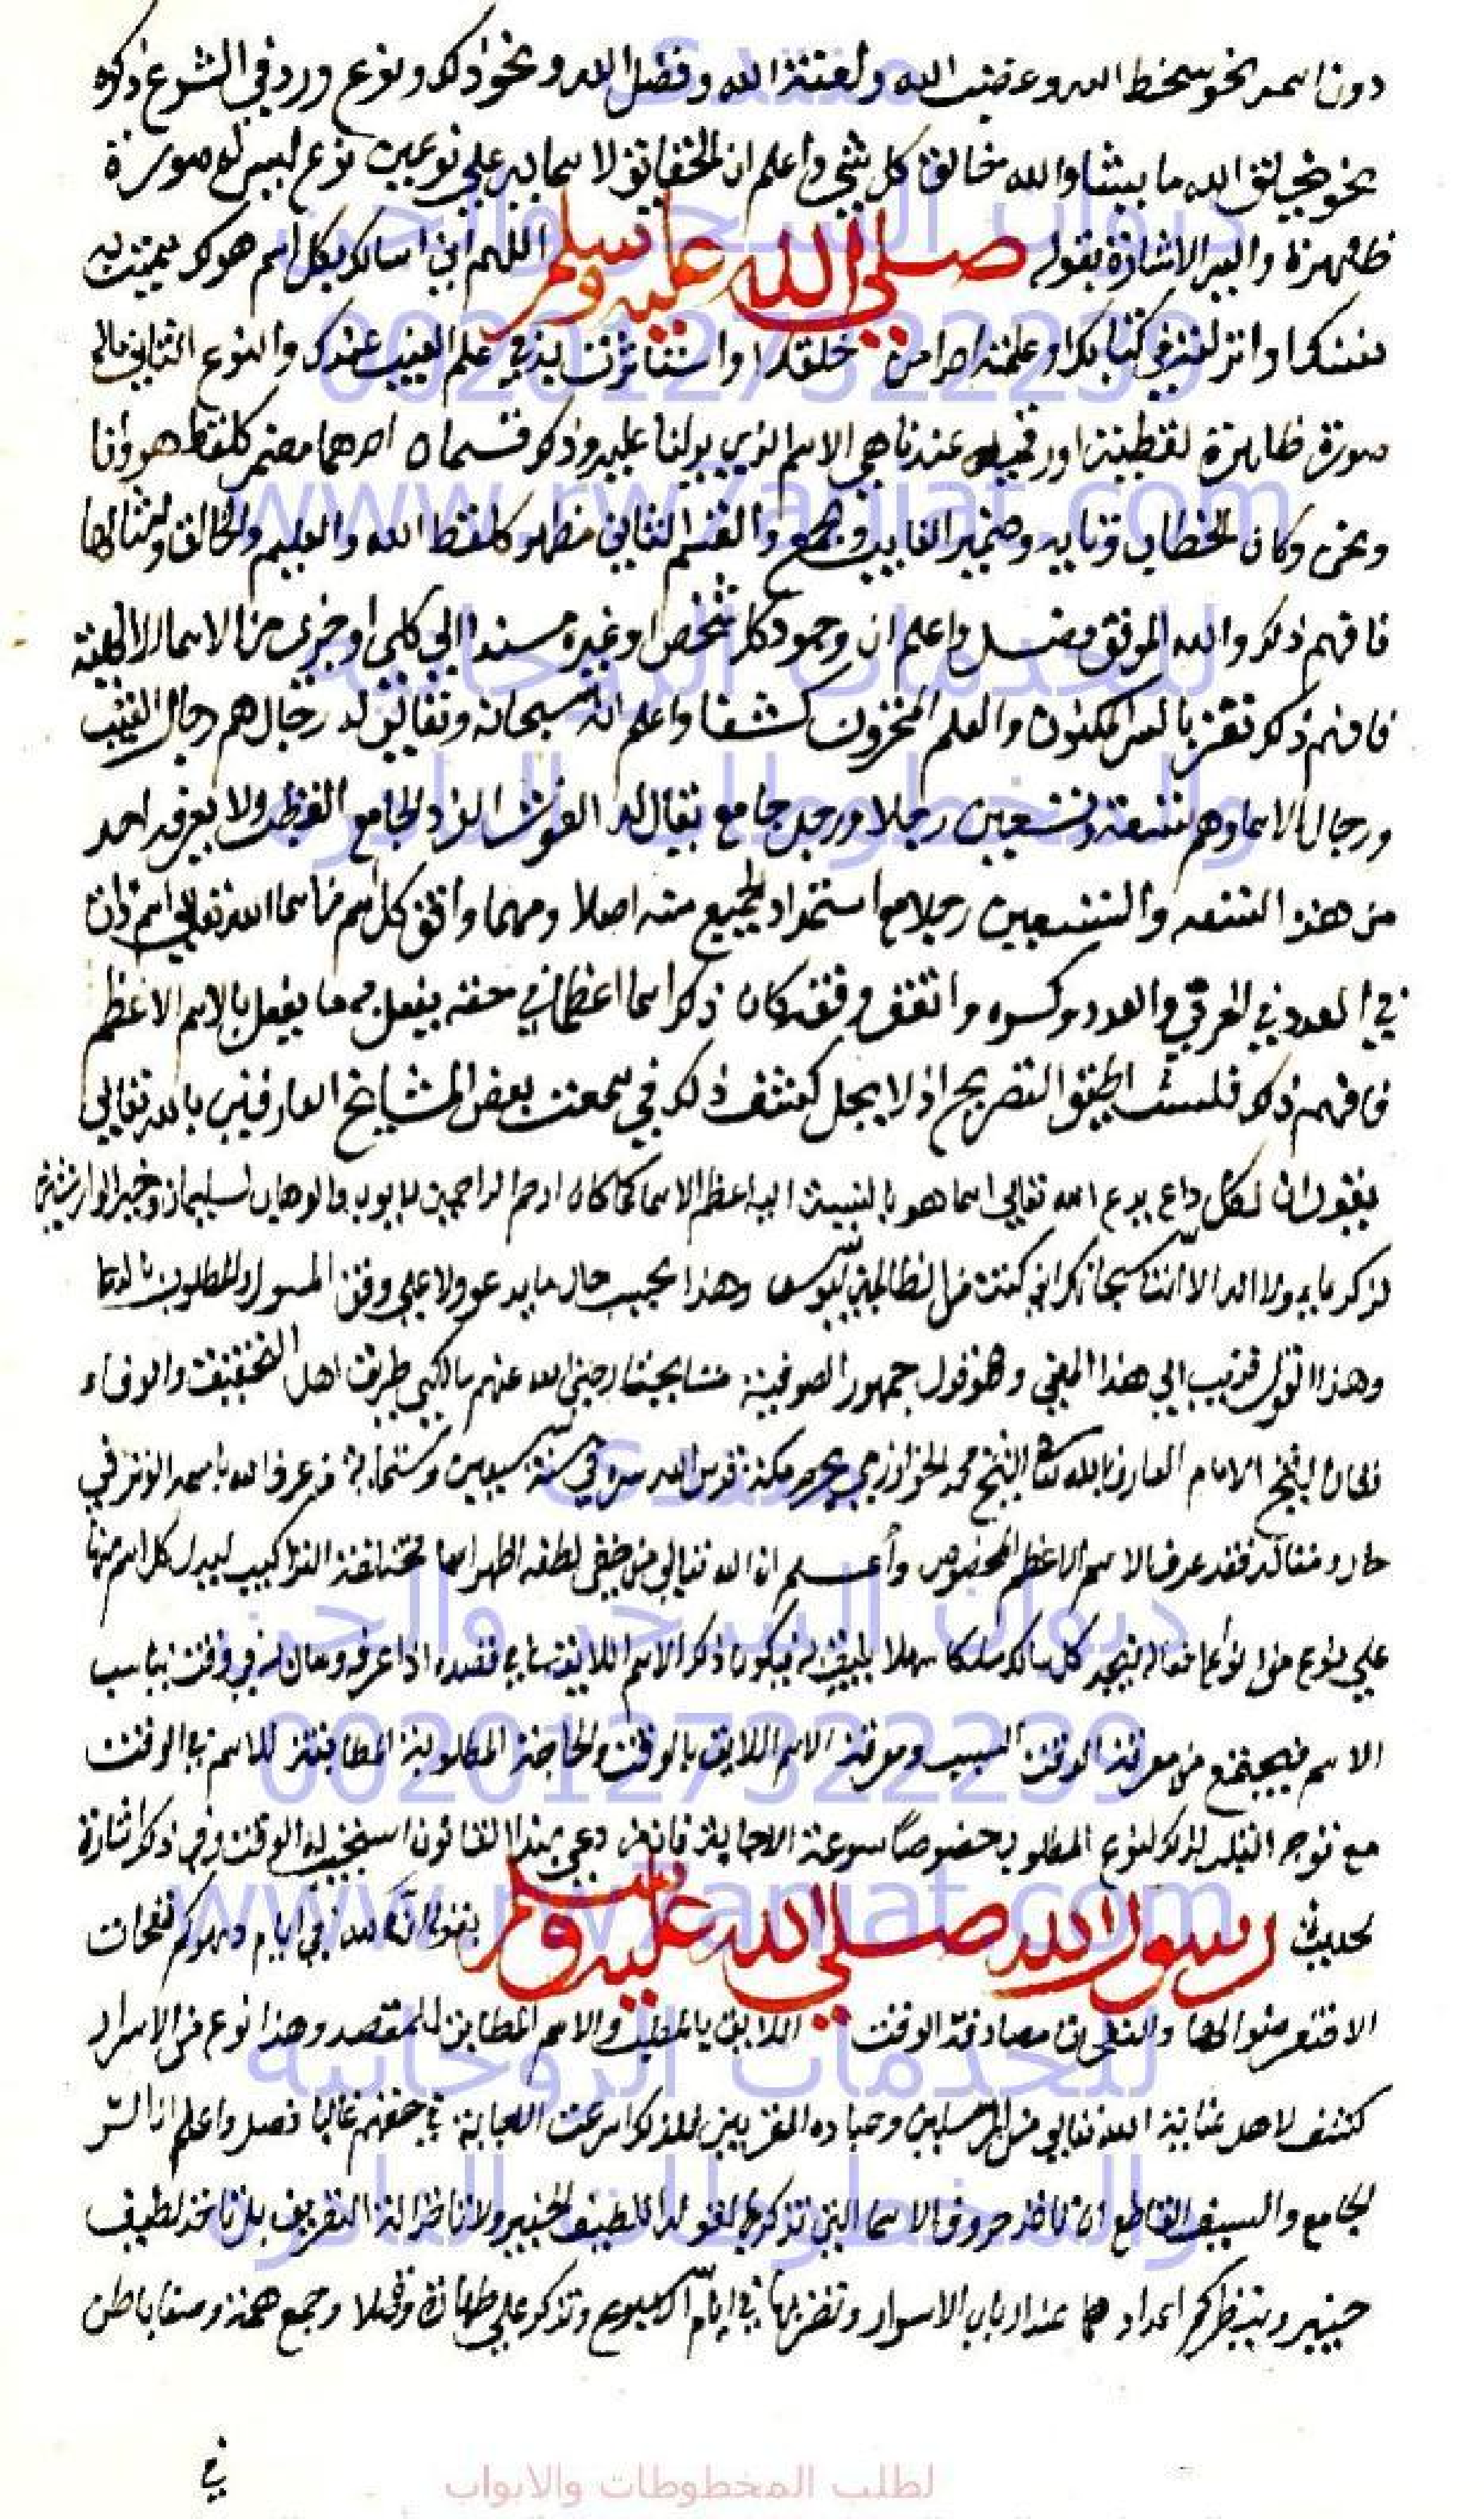 دون اسم نحو سخط الله وغضب الله ولعنة الله وفضل الله ونحو ذلك ونوع ورد في الشرع ذكره
نحو يخلق الله ما يشا والله خالق كل شي واعلم ان الحقايق الاسمايه علي نوعين نوع ليس له صورة
ظاهرة واليه الاشارة بقوله صلي الله عليه وسلم اللهم اني اسالك بكل اسم هو لك سميت به
نفسك او انزلته في كتابك او علمته احدا من خلقك او استاثرت به في علم الغيب عندك والنوع الثاني ماله
صورة ظاهرة لفظية او رقميه عندنا هي الاسم الذي يدلنا عليه وذلك قسمان احدهما مضمر كلفظ هو وانا
ونحن وكاف الخطاب وتايه وضمير الغايب وجمع والقسم الثاني مظهر كلفظ الله والعليم والخالق وامثالها
فافهم ذلك والله الموفق فصل واعلم ان وجود كل شخص او غيره مسندا الي كلي او جزي من الاسما الالهية
فافهم ذلك تفز بالسر المكنون والعلم المخزون كشفا واعلم انه سبحانه وتعالي له رجال هم رجال الغيب
ورجال الاسما وهم تسعة وتسعين رجلا ورجل جامع يقال له الغوث الفرد الجامع القطب ولا يعرفه احد
من هذه التسعه والتسعين رجلا مع استمداد الجميع منه اصلا ومهما وافق كل اسم من اسما الله تعالي اسم ذات
في العدد في الحرفي والعدد وكسره واتفق وفقه كان ذلك اسما اعظما في حقه يفعل به ما يفعل بالاسم الاعظم
فافهم ذلك فلست اطيق التصريح اذ لا يحل كشف ذلك سمعت بعض المشايخ العارفين بالله تعالي
يقول ان لكل داع يدع الله تعالي اسما هو بالنسبة اليه اعظم الاسما كما كان ارحم الراحمين لايوب والوهاب لسليمان وخير الوارثين
لزكريا ولا اله الا انت سبحانك اني كنت من الظالمين ليونس وهذا بحسب حال ما يدعو ولا علي وفق المسول والمطلوب بالدعا
وهذا القول قريب الي هذا المعني وهو قول جمهور الصوفية مشايخنا رضي الله عنهم سالكين طريق اهل التحقيق والوفاء
الشيخ الامام العارف بالله الشيخ محمد الخوارزمي بحرم مكة قدس الله سره في سنة سبعين وستماية من عرف الله باسمه الوتر في
فقد عرف الاسم الاعظم المخصوص واعلم ان الله تعالي من خفي لطفه اظهر اسما مختلفة التراكيب ليدل كل اسم منها
علي نوع من انواع افعاله ليجد كل سالك مسلكا سهلا يليق به فيكون ذكر الاسم اللايق في قصده اذا عرفه وكان في وقت يناسب
الاسم فيجتمع من معرفة الوقت المسبب ومعرفة الاسم اللايق بالوقت والحاجة المطلوبة المطابقة للاسم في الوقت
مع توجه القلب لذلك النوع المطلوب خصوصا سرعة الاجابة فانه من دعي بهذا القانون استجيب له الوقت وفي ذلك اشارة
لحديث رسول الله صلي الله عليه وسلم بقوله ان لله في ايام دهركم نفحات
الا فتعرضوا لها مصادفة الوقت اللايق بالطلب والاسم المطابق للمقصد وهذا نوع من الاسرار
كشف لاهل عناية الله تعالي من المرسلين وعباده المقربين فلذلك اسرعت الاجابة في حقهم غالبا فصل واعلم ان السر
الجامع والسيف القاطع ان تاخذ حروف الاسما التي تذكر بها لقولك اللطيف الخبير ولا تاخذ الة التعريف بل تاخذ لطيف
خبير وينظر كم اعداد ها عند ارباب الاسرار وتضربها في ايام الاسبوع وتذكر علي طهارة وجمع همة وصفا باطن
في
منتدى
ديوان السحر والجن
0020127322239
www.rw7aniat.com
للخدمات الروحانية
والمخطوطات النادره
منتدى
ديوان السحر والجن
0020127322239
www.rw7aniat.com
للخدمات الروحانية
والمخطوطات النادره
لطلب المخطوطات والابواب